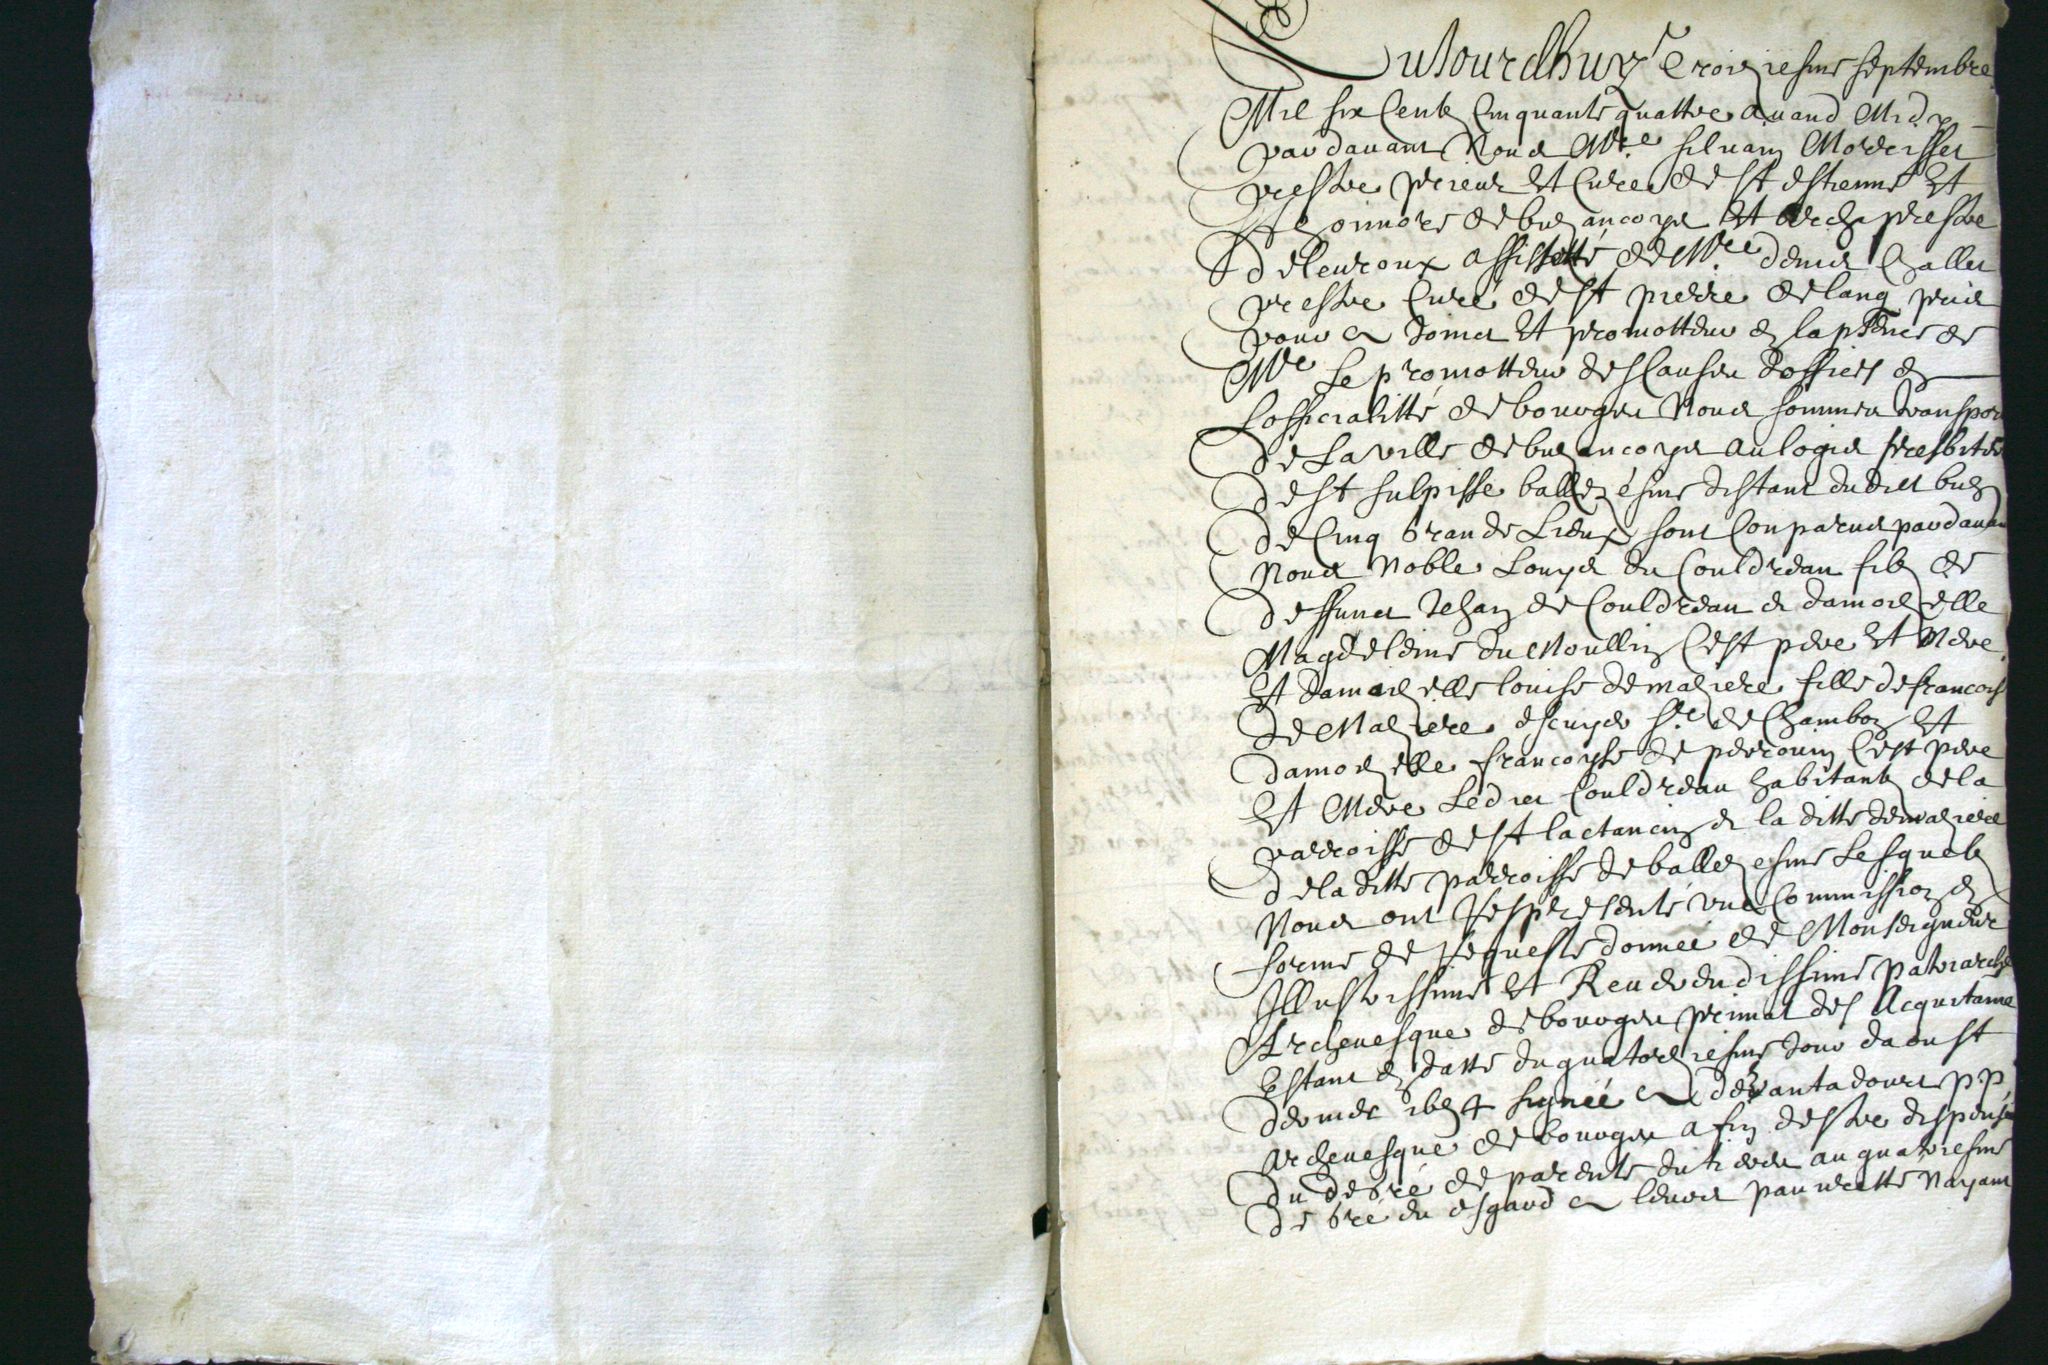 Aujourdhuy troiziesme septembre
Mil six centz cinquante quattre avand Midy
pardavant Nous Mre silvain Morisset
prestre prieur et curé de st estienne et
de buzancoys et archiprestre
de levroux assisté de Mre denis Challet
prestre curé de st pierre de lang pris
pour et promotteur en la psence de
Mre le promotteur des causes doffices en
lofficialitté de bourges Nous sommes transpor
de la ville de buzancoys au logis presbiter
de st sulpisse ballezesme distant dudict buz
de cinq grande lieux sont conparus pardavan
Nous Noble Louys du Couldreau filz de
deffunct Jehan de Couldreau et damoizelle
Magdeleine du Moullin cest pere et Mere
et damoizelle louise de maziere fille de francois
de Maziere escuyer sr de Chambon et
damoizelle francoyse de perrouin cest pere
et Mere Ledict Couldreau habitantz de la
parroisse de st lactancin et la ditte demaziere
de la ditte parroisse de ballezesme Lesquelz
Nous ont represcenté une Commission en
forme de requeste donnee de Monseigneur
Illustrissime et Reverendissime patriarche
Archevesque de bourges primat des Acquitaine
Estant en datte du quatorziesme jour daoust
dernier 1654 signéé devantadour pp
archevesque de bourges afin destre dispensé
du degré de parenté du tiers au quatriesme
degré en esgard a leurs pauvrette Nayant